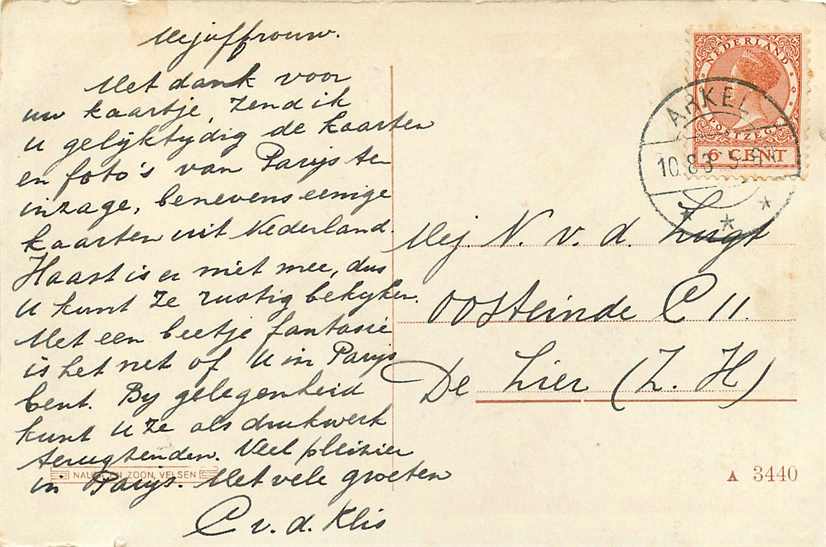 Mejuffrouw.
Met dank voor
uw kaartje, zend ik
u gelijktijdig de kaarten
en foto's van Parijs ter
inzage, benevens eenige
kaarten uit Nederland.
Haast is er niet mee, dus
u kunt ze rustig bekijken.
Met een beetje fantasie
is het net of U in Parijs
bent. By gelegenheid
kunt U ze als drukwerk
terugzenden. Veel pleizier
in Parijs. Met vele groeten
C v. d. Klis
NEDERLAND
POSTZEGEL
6 CENT
ARKEL
10.8.3
Mej. N. v. d. Lugt
Oosteinde C 11.
De Lier (Z. H)
NAUTA EN ZOON, VELSEN
A 3440